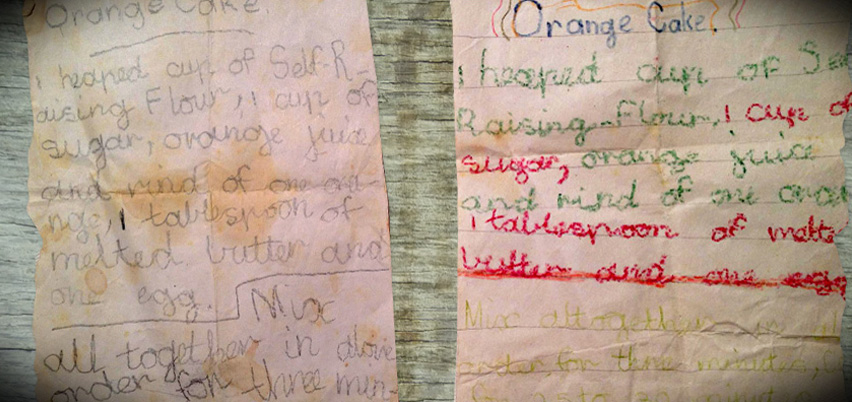 Orange Cake.
1 heaped cup of Self-R-
aising Flour, 1 cup of
sugar, orange juice
and rind of one ora-
nge, 1 tablespoon of
melted butter and
one egg. Mix
all together in above
order for three min-
Orange Cake.
1 heaped cup of Se
Raising-Flour, 1 cup of
sugar, orange juice
and rind of one oran
1 tablespoon of melte
butter and one egg
Mix altogether in a
order for three minutes,